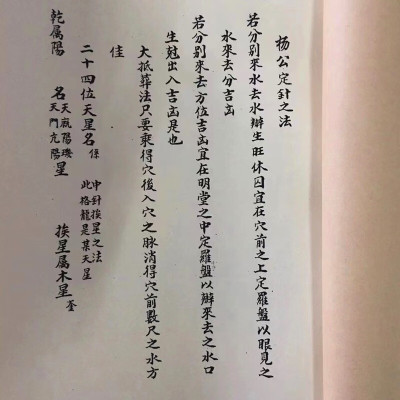 杨公定針之法
若分别來水去水辦生旺休囚宜在穴前之上定羅盤以眼見之
水來去分吉凶
若分别來去方位吉凶宜在明堂之中定羅盤以辦來去之水口
生尅出入吉凶是也
大抵葬法只要乘得穴後入穴之脉消得穴前數尺之水方
佳
二十四位天星名係 中針挨星之法
此格龍是某天星
乾属陽 名天厩陽璣
天門亢陽星 挨星属木星奎